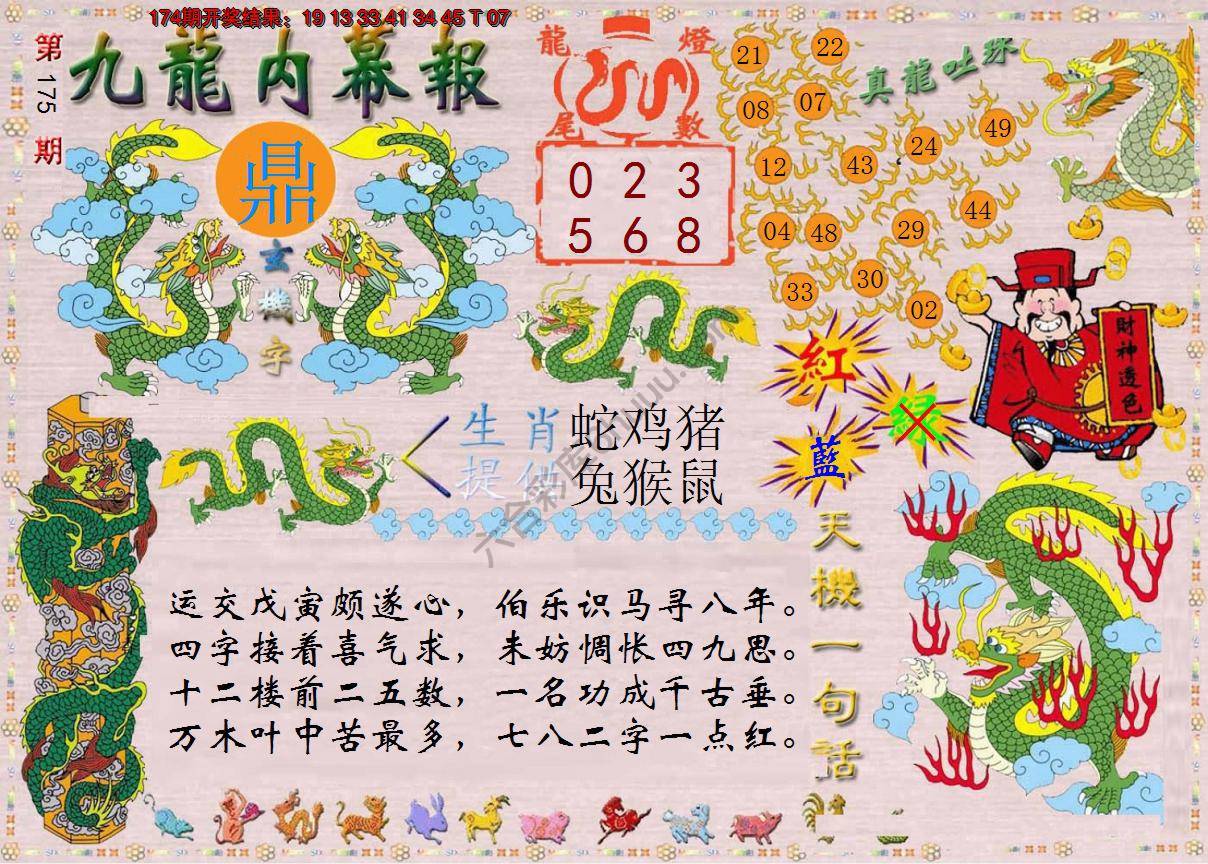 174期开奖结果：19 13 33 41 34 45 T 07
第175期
九龍内幕報
鼎
玄機字
龍燈
尾數
0 2 3
5 6 8
真龍吐珠
21 22
08 07
12 43 24 49
04 48 29 44
33 30 02
財神透色
紅
绿
藍
生肖 蛇鸡猪
提供 兔猴鼠
天機一句話
运交戊寅颇遂心，伯乐识马寻八年。
四字接着喜气求，未妨惆怅四九思。
十二楼前二五数，一名功成千古垂。
万木叶中苦最多，七八二字一点红。